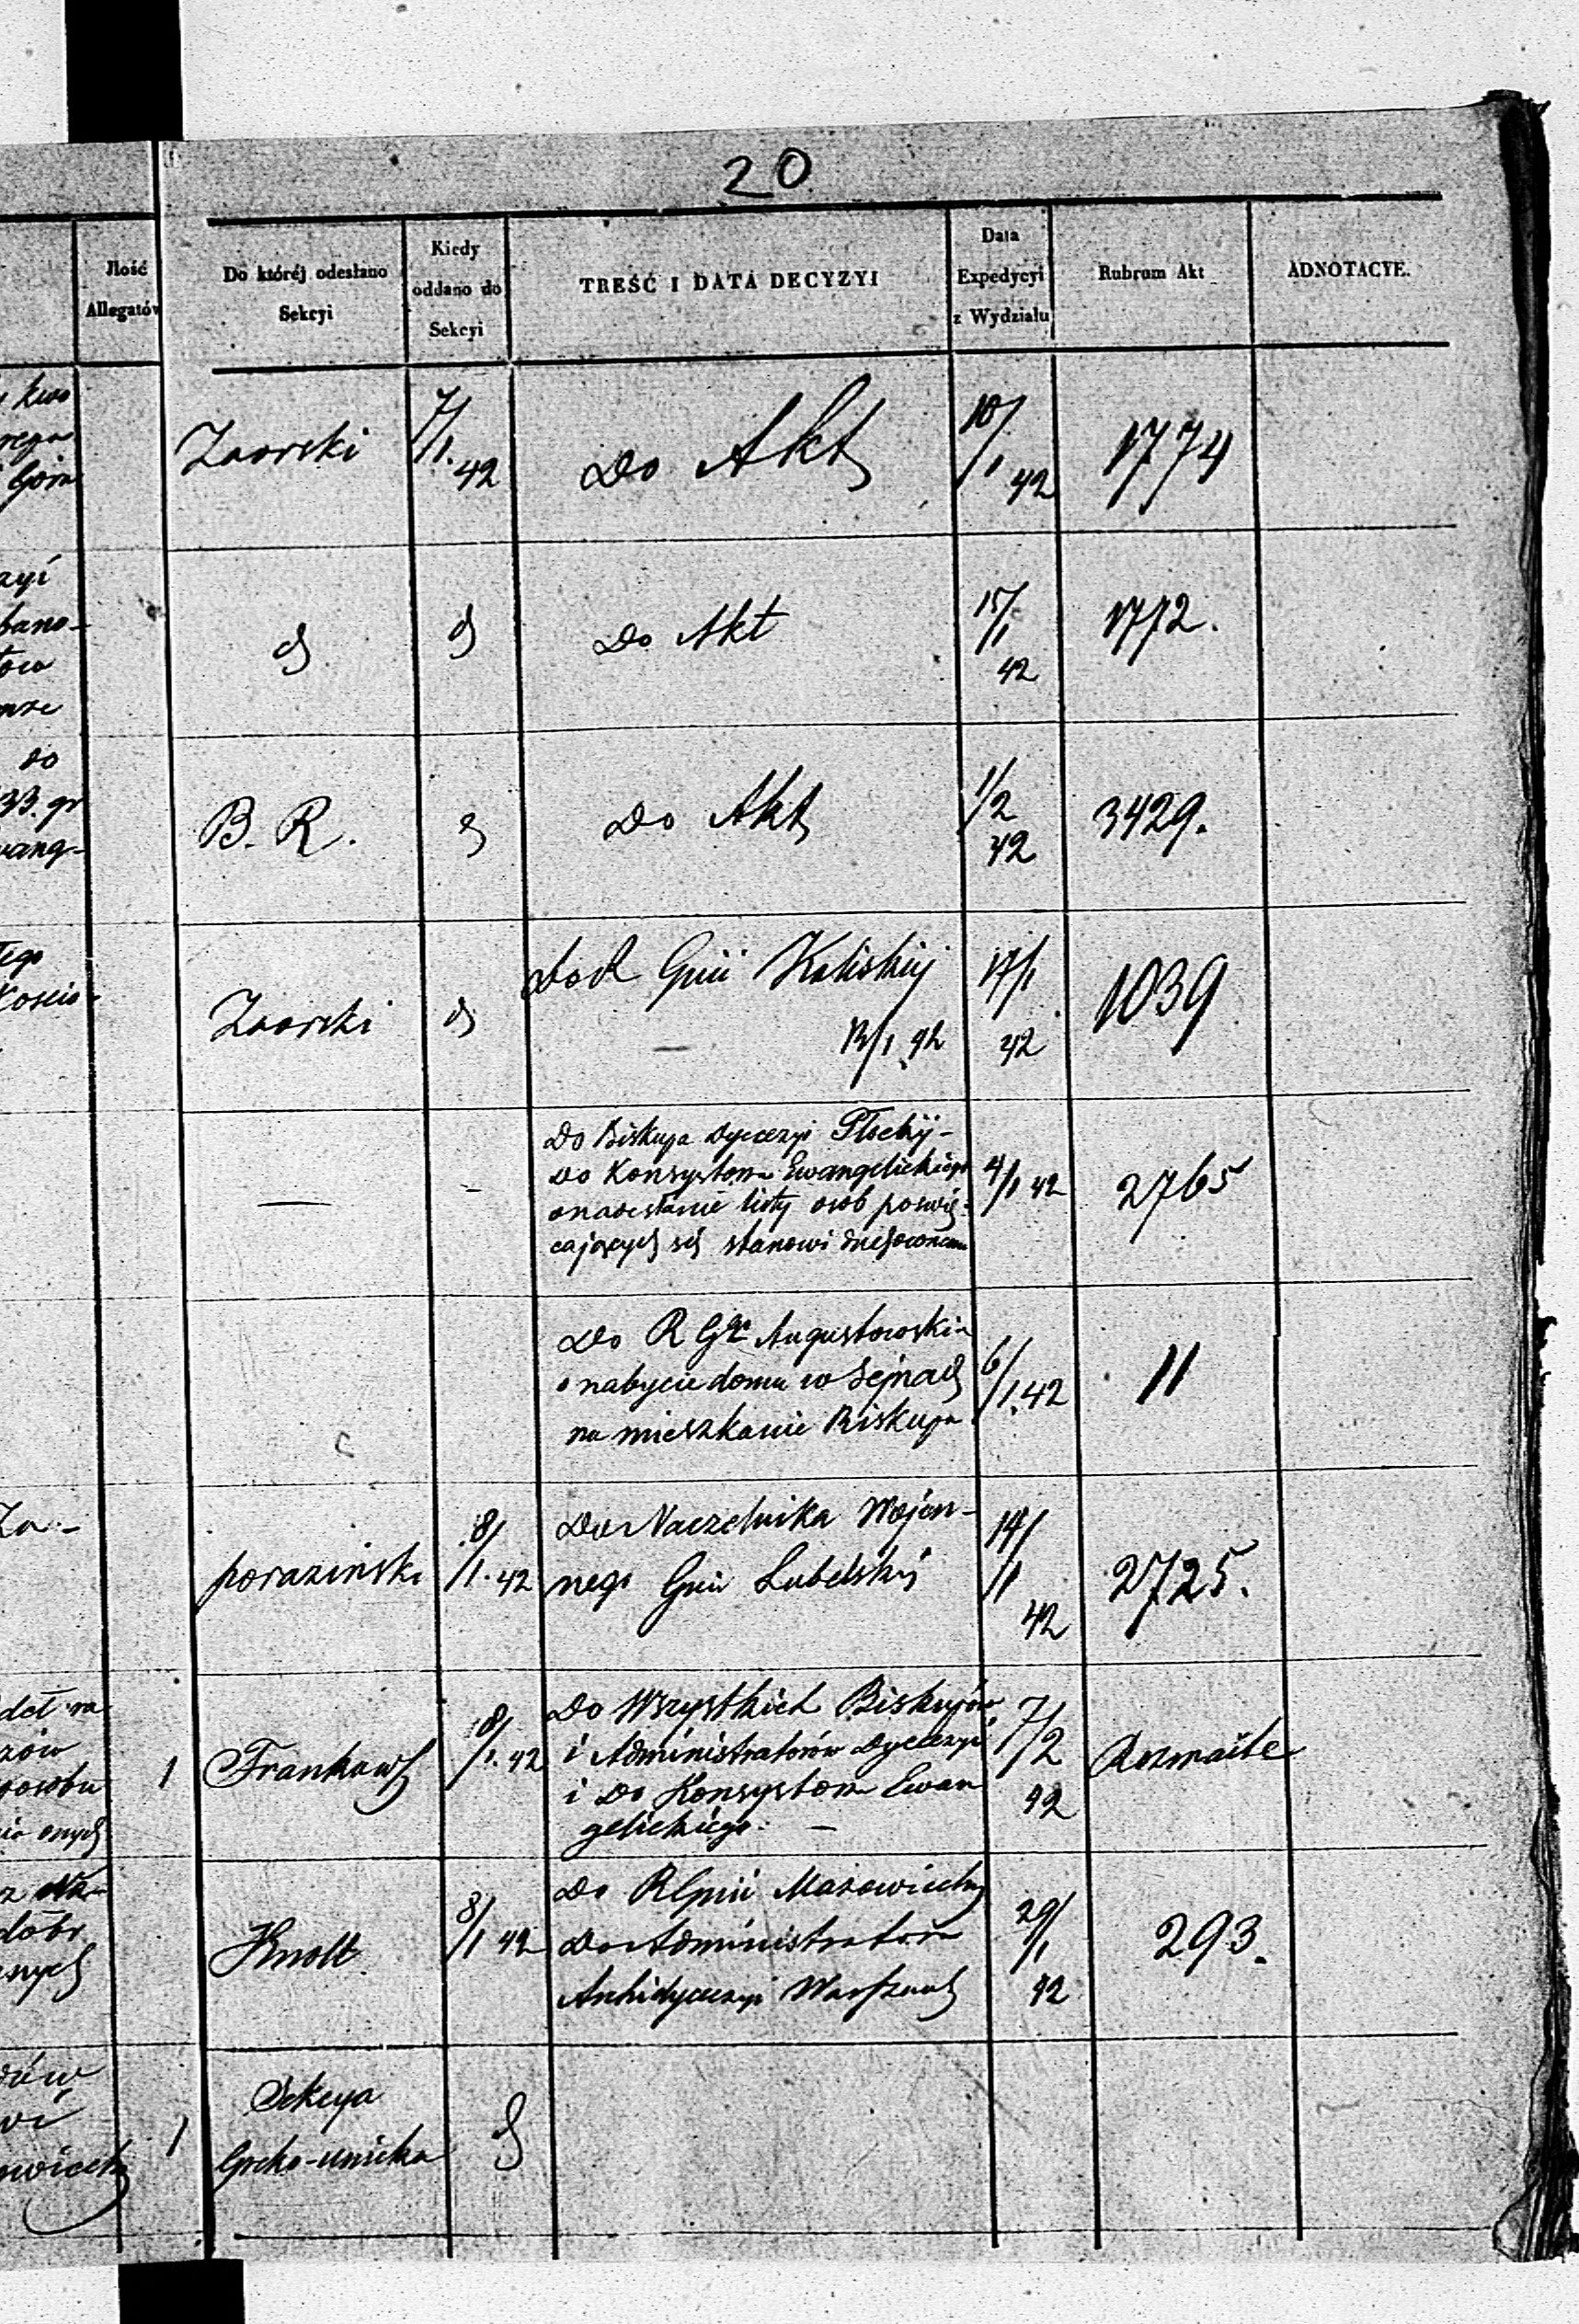 20
Jlość
Allegatów
Do któréj odesłano
Sekcyi
Kiedy
oddano do
Sekcyi
TREŚĆ I DATA DECYZYI
Data
Expedycyi
z Wydziału
Rubrum Akt
ADNOTACYE.
Zaorski
7/1. 42
Do Akt
10/1 42
1774
Do Akt
15/1 42
1772.
B. R.
Do Akt
1/2 42
3429.
Zaorski
Do R Gnii Kaliskiej
12/1 42
17/1 42
1039
Do Biskupa Dyecezyi Płockij –
Do Konsystorza Ewangelickiego
o nadesłanie listy osób poswię-
cających się stanowi duchownemu
4/1 42
2765
Do R Augustowskie
o nabycie domu w Sejnach
na mieszkanie Biskupa
6/1. 42
11
porazinski
8/1. 42
Do Naczelnika Wojen-
nego Gnii Lubelskij
14/1 42
2725.
1
Frankows
8/1. 42
Do Wszystkich Biskupów
i Administratorów Dyecezyi
i Do Konsystorza Ewan
gelickiego. –
7/2 42
Rozmaite
Knoll
8/1 42
Do R Gnii Mazowieckij
Do Administratora
Archidyecezyi Warszaws
29/1 42
293.
1
Sekcya
Greko-unicka